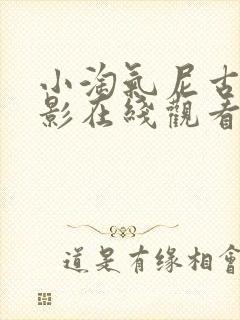 小淘氣尼古
影在綫觀看
道是有缘相會